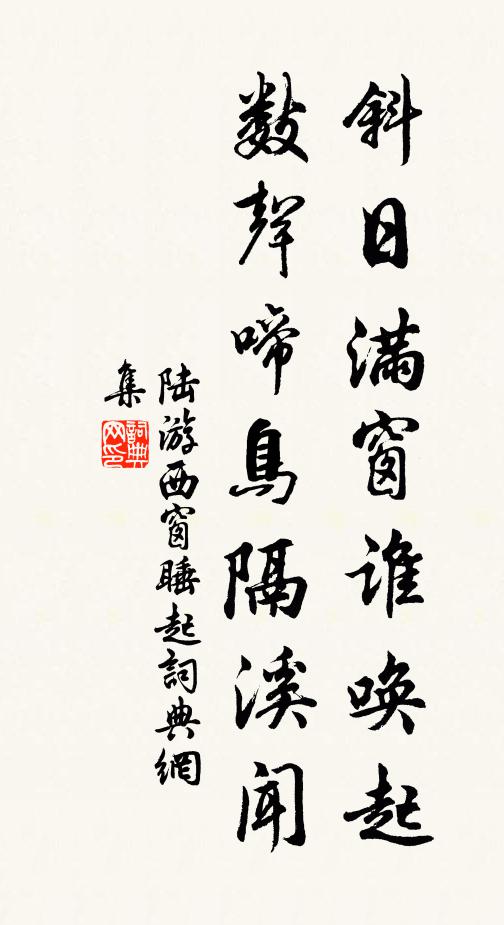 斜日满窗谁唤起
数声啼鸟隔溪闻
陆游西窗睡起詞典網
集
詞典网印